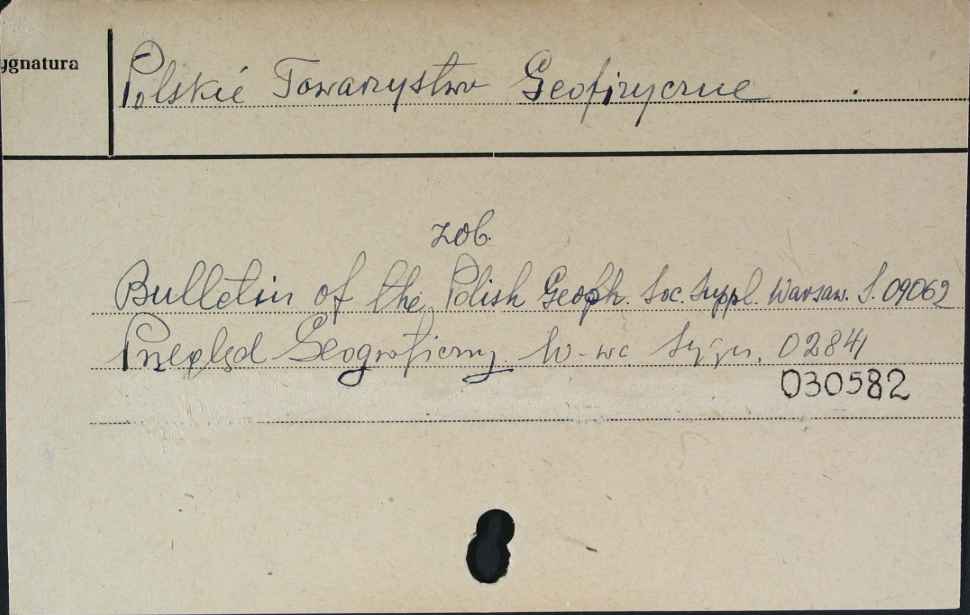 ygnatura
Polskie Towarzystwo Geofizyczne
zob.
Bulletin of the Polish Geoph. Soc. Suppl. Warsaw. S. 09062
Przegląd Geograficzny W-wa Sygn. 02841
030582